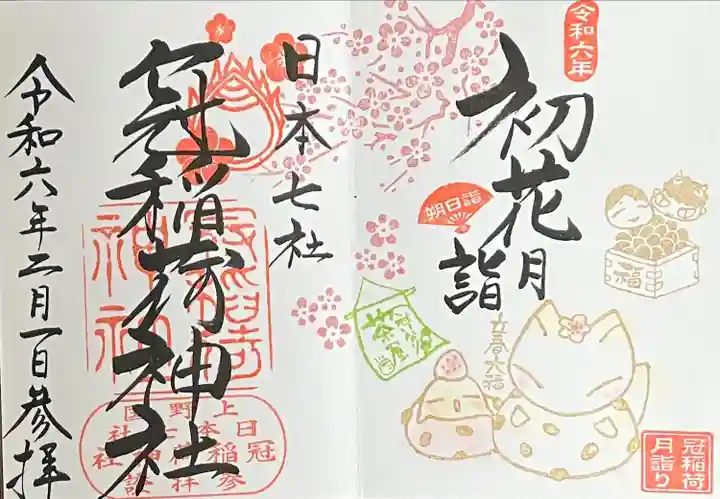 令和六年
初花月詣
朔日詣
福
立春大福
冠稲荷
月詣り
日本七社
冠稲荷神社
令和六年二月一日参拝